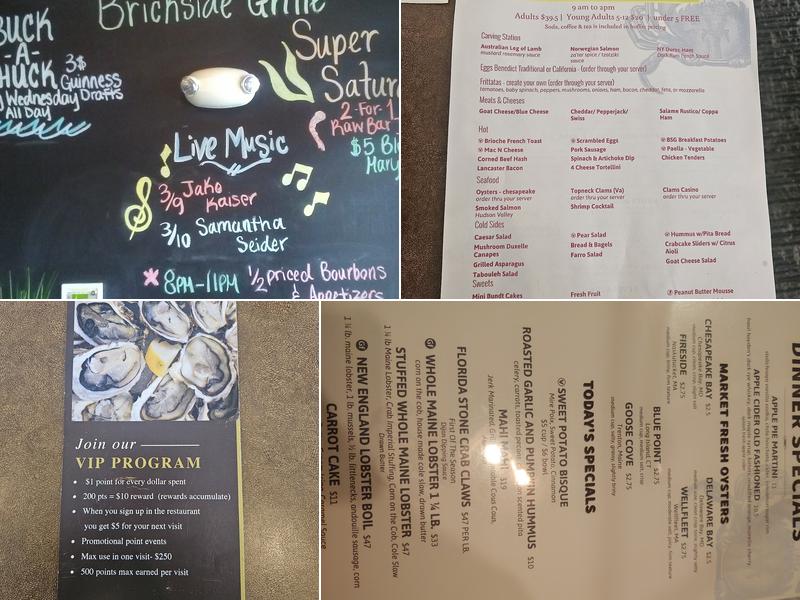 Brickside Grille
BUCK
-A-
HUCK
Wednesday
All Day
3$
Guinness
Drafts
Super
Satur
2-For-1
Raw Bar
$5 Bl
Mary
Live Music
3/9 Jako
Kaiser
3/10 Samantha
Seider
8PM-11PM 1/2 priced Bourbons
& Appetizers
9 am to 2pm
Adults $39.5 | Young Adults 5-12 $20 | under 5 FREE
Soda, coffee & tea is included in buffet pricing
Carving Station
Australian Leg of Lamb
mustard rosemary sauce
Norwegian Salmon
za'ter spice / tzatziki
sauce
NY Duroc Ham
Dark Rum Peach Sauce
Eggs Benedict Traditional or California - (order through your server)
Frittatas - create your own (order through your server)
tomatoes, baby spinach, peppers, mushrooms, onions, ham, bacon, cheddar, feta, or mozzarella
Meats & Cheeses
Goat Cheese/Blue Cheese
Cheddar/ Pepperjack/
Swiss
Salame Rustico/ Coppa
Ham
Hot
Brioche French Toast
Mac N Cheese
Corned Beef Hash
Lancaster Bacon
Scrambled Eggs
Pork Sausage
Spinach & Artichoke Dip
4 Cheese Tortellini
BSG Breakfast Potatoes
Paella - Vegetable
Chicken Tenders
Seafood
Oysters - chesapeake
order thru your server
Smoked Salmon
Hudson Valley
Topneck Clams (Va)
order thru your server
Shrimp Cocktail
Clams Casino
order thru your server
Cold Sides
Caesar Salad
Mushroom Duxelle
Canapes
Grilled Asparagus
Tabouleh Salad
Pear Salad
Bread & Bagels
Farro Salad
Hummus w/Pita Bread
Crabcake Sliders w/ Citrus
Aioli
Goat Cheese Salad
Sweets
Mini Bundt Cakes
Fresh Fruit
Peanut Butter Mousse
Join our
VIP PROGRAM
• $1 point for every dollar spent
• 200 pts = $10 reward (rewards accumulate)
• When you sign up in the restaurant
you get $5 for your next visit
• Promotional point events
• Max use in one visit- $250
• 500 points max earned per visit
DINNER SPECIALS
APPLE PIE MARTINI 11
APPLE CIDER OLD FASHIONED 10.5
MARKET FRESH OYSTERS
CHESAPEAKE BAY $2.5
Chesapeake Bay, MD
DELAWARE BAY $2.5
Delaware Bay, MD
FIRESIDE $2.75
Noskatucket, MA
WELLFLEET $2.75
Wellfleet, MA
BLUE POINT $2.75
Long Island, CT
GOOSE COVE $2.75
Trenton, Maine
TODAY'S SPECIALS
SWEET POTATO BISQUE
Mire Poix, Sweet Potato, Cinnamon
$5 cup / $6 bowl
ROASTED GARLIC AND PUMPKIN HUMMUS $10
MAHI MAHI $19
FLORIDA STONE CRAB CLAWS $47 PER LB.
First Of The Season
Dijon Dipping Sauce
WHOLE MAINE LOBSTER 1 ¼ LB. $33
corn on the cob, house made cole slaw, drawn butter
STUFFED WHOLE MAINE LOBSTER $47
1 ¼ lb Maine Lobster, Crab Imperial Stuffing, Corn on the Cob, Cole Slaw
Drawn Butter
NEW ENGLAND LOBSTER BOIL $47
1 ¼ lb. maine lobster, 1 lb. mussels, ½ lb. littlenecks, andouille sausage, corn
CARROT CAKE $11